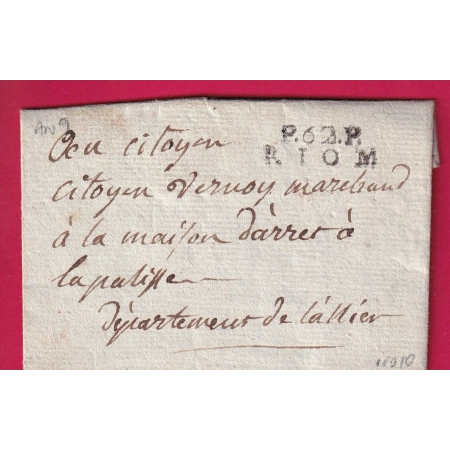 An 9
P.62.P.
RIOM
Au citoyen
citoyen vernoy marchand
à la maison d'arret à
lapalisse
département de l'allier